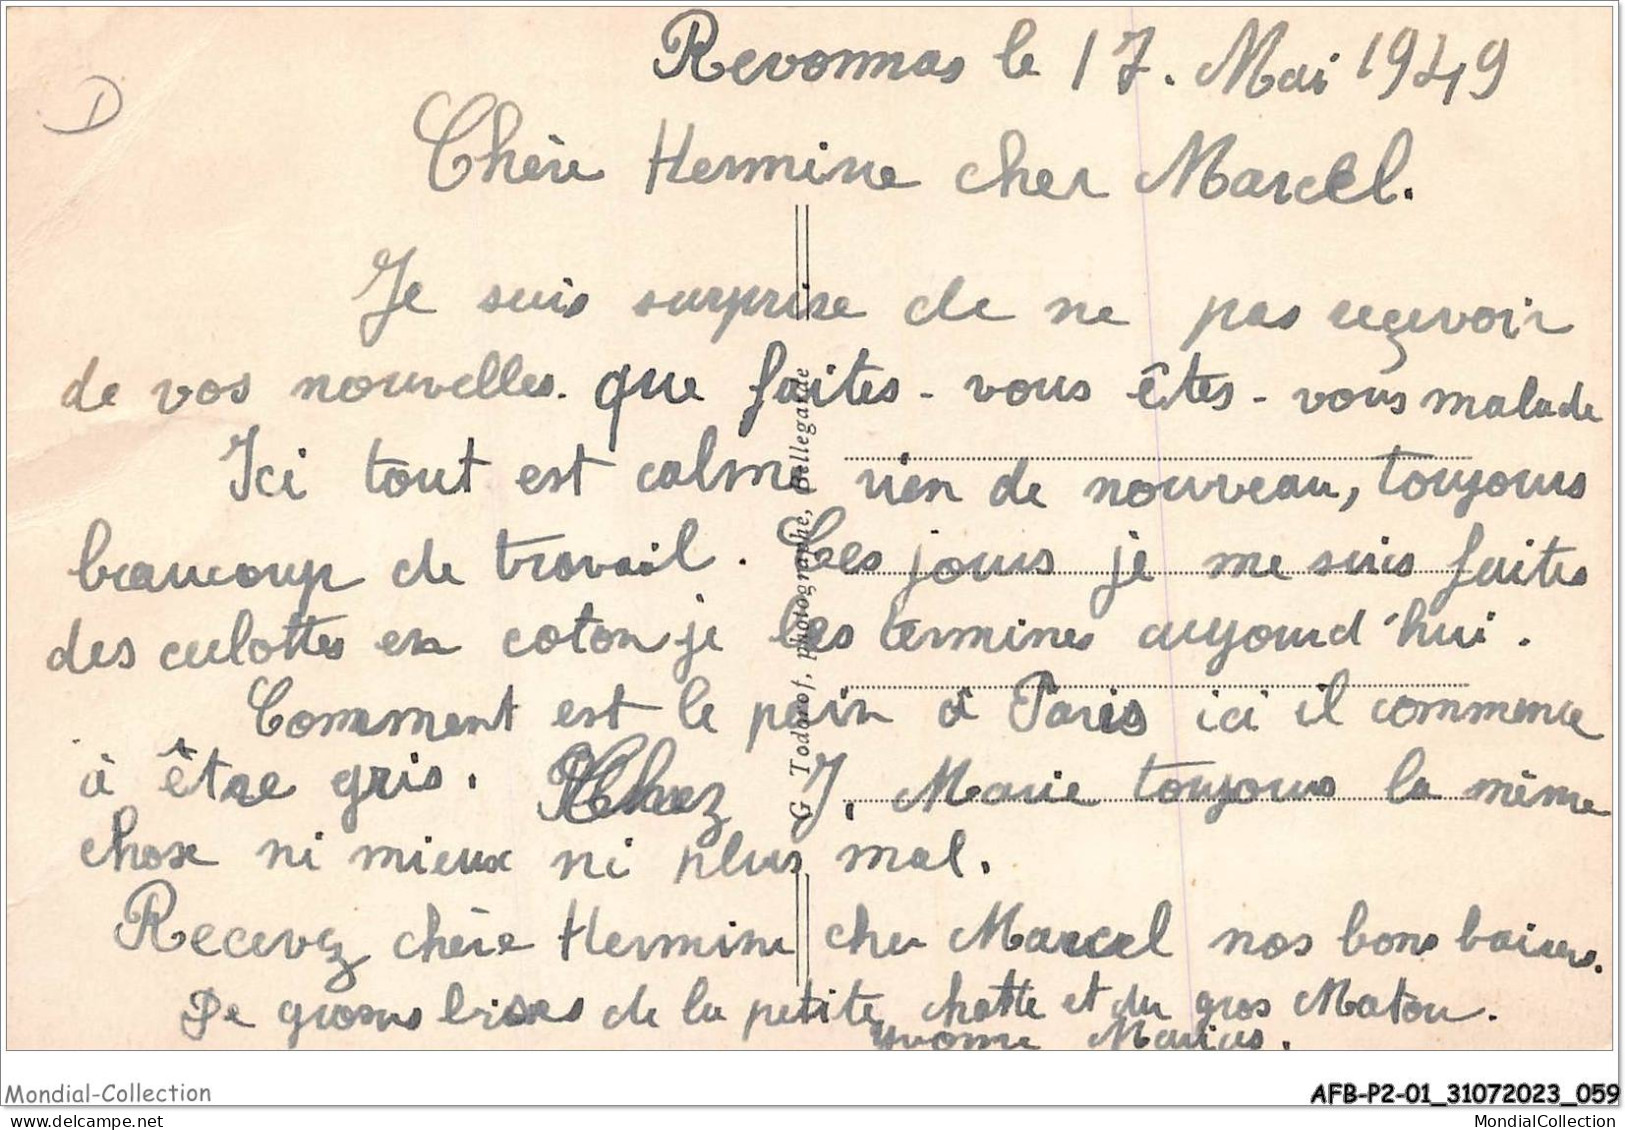 Revonnas le 17. Mai 1949
D
Chère Hermine cher Marcel.
Je suis surprise de ne pas reçevoir
de vos nouvelles. que faites-vous êtes-vous malade
Ici tout est calme rien de nouveau, toujours
beaucoup de travail. Ces jours je me suis faites
des culottes en coton je les termines aujourd'hui.
Comment est le pain à Paris ici il commence
à être gris. Chez J. Marie toujours la même
chose ni mieux ni plus mal.
Recevez chère Hermine cher Marcel nos bons baisers.
De grosses bises de la petite chatte et du gros Matou.
Yvonne Marius.
G. Todorof, photographe, Bellegarde
Mondial-Collection
AFB-P2-01_31072023_059
MondialCollection